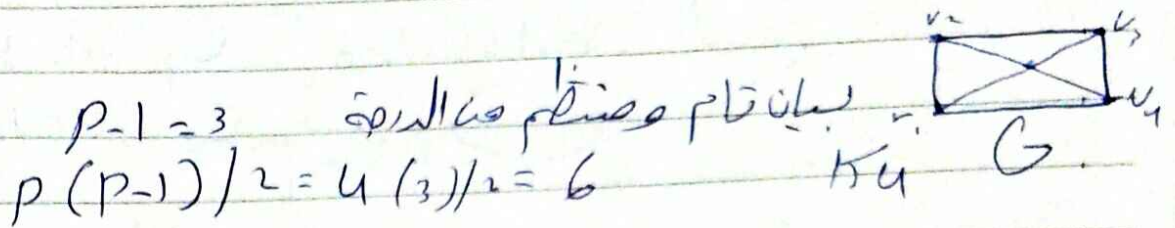 v₂ v₃
بيان تام ومنتظم من الدرجة p-1=3
v₁ v₄
K4 G.
p(p-1)/2=4(3)/2=6